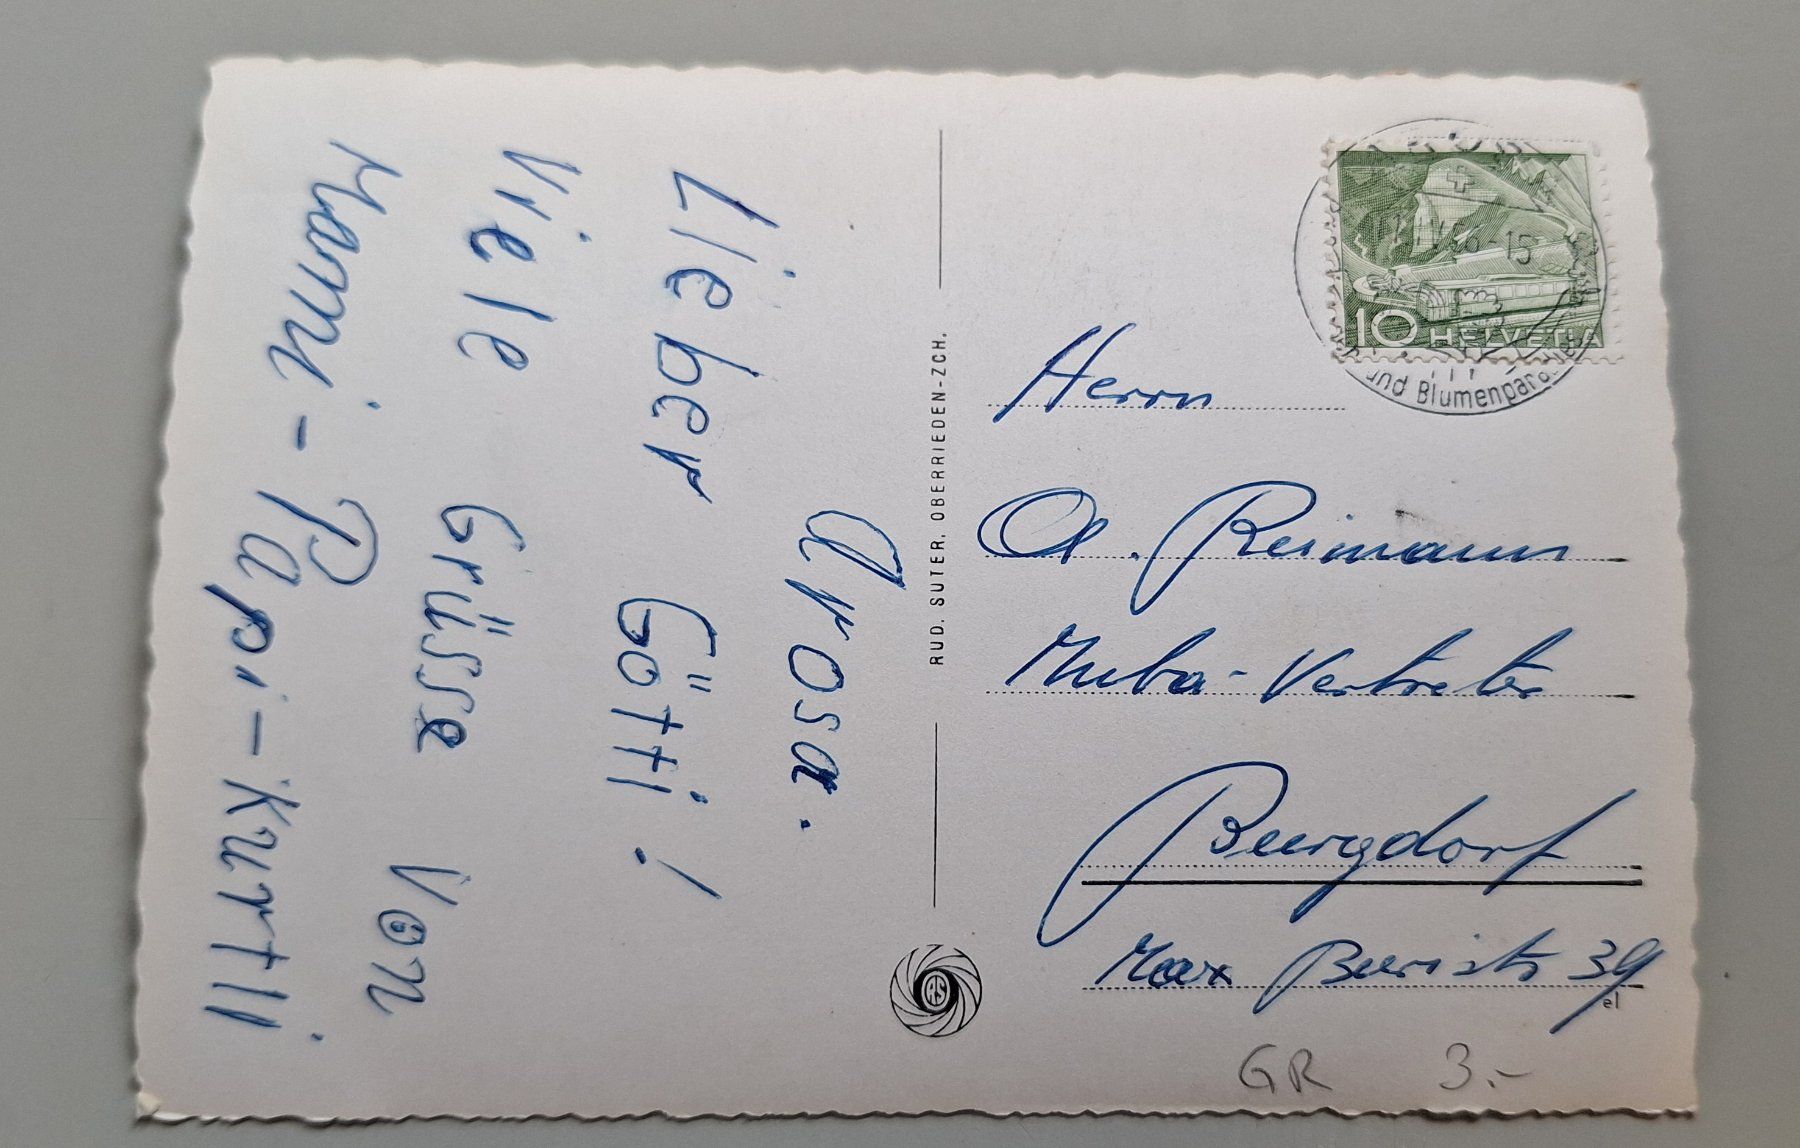 Arosa.
Lieber Götti!
Viele Grüsse Von
Mami - Papi - Kurtli
RUD. SUTER, OBERRIEDEN-ZCH.
RS
10 HELVETIA
15
und Blumenpar
Herrn
A. Reimann
Muba-Vertreter
Burgdorf
Max Buristr 39
el
GR 3.-